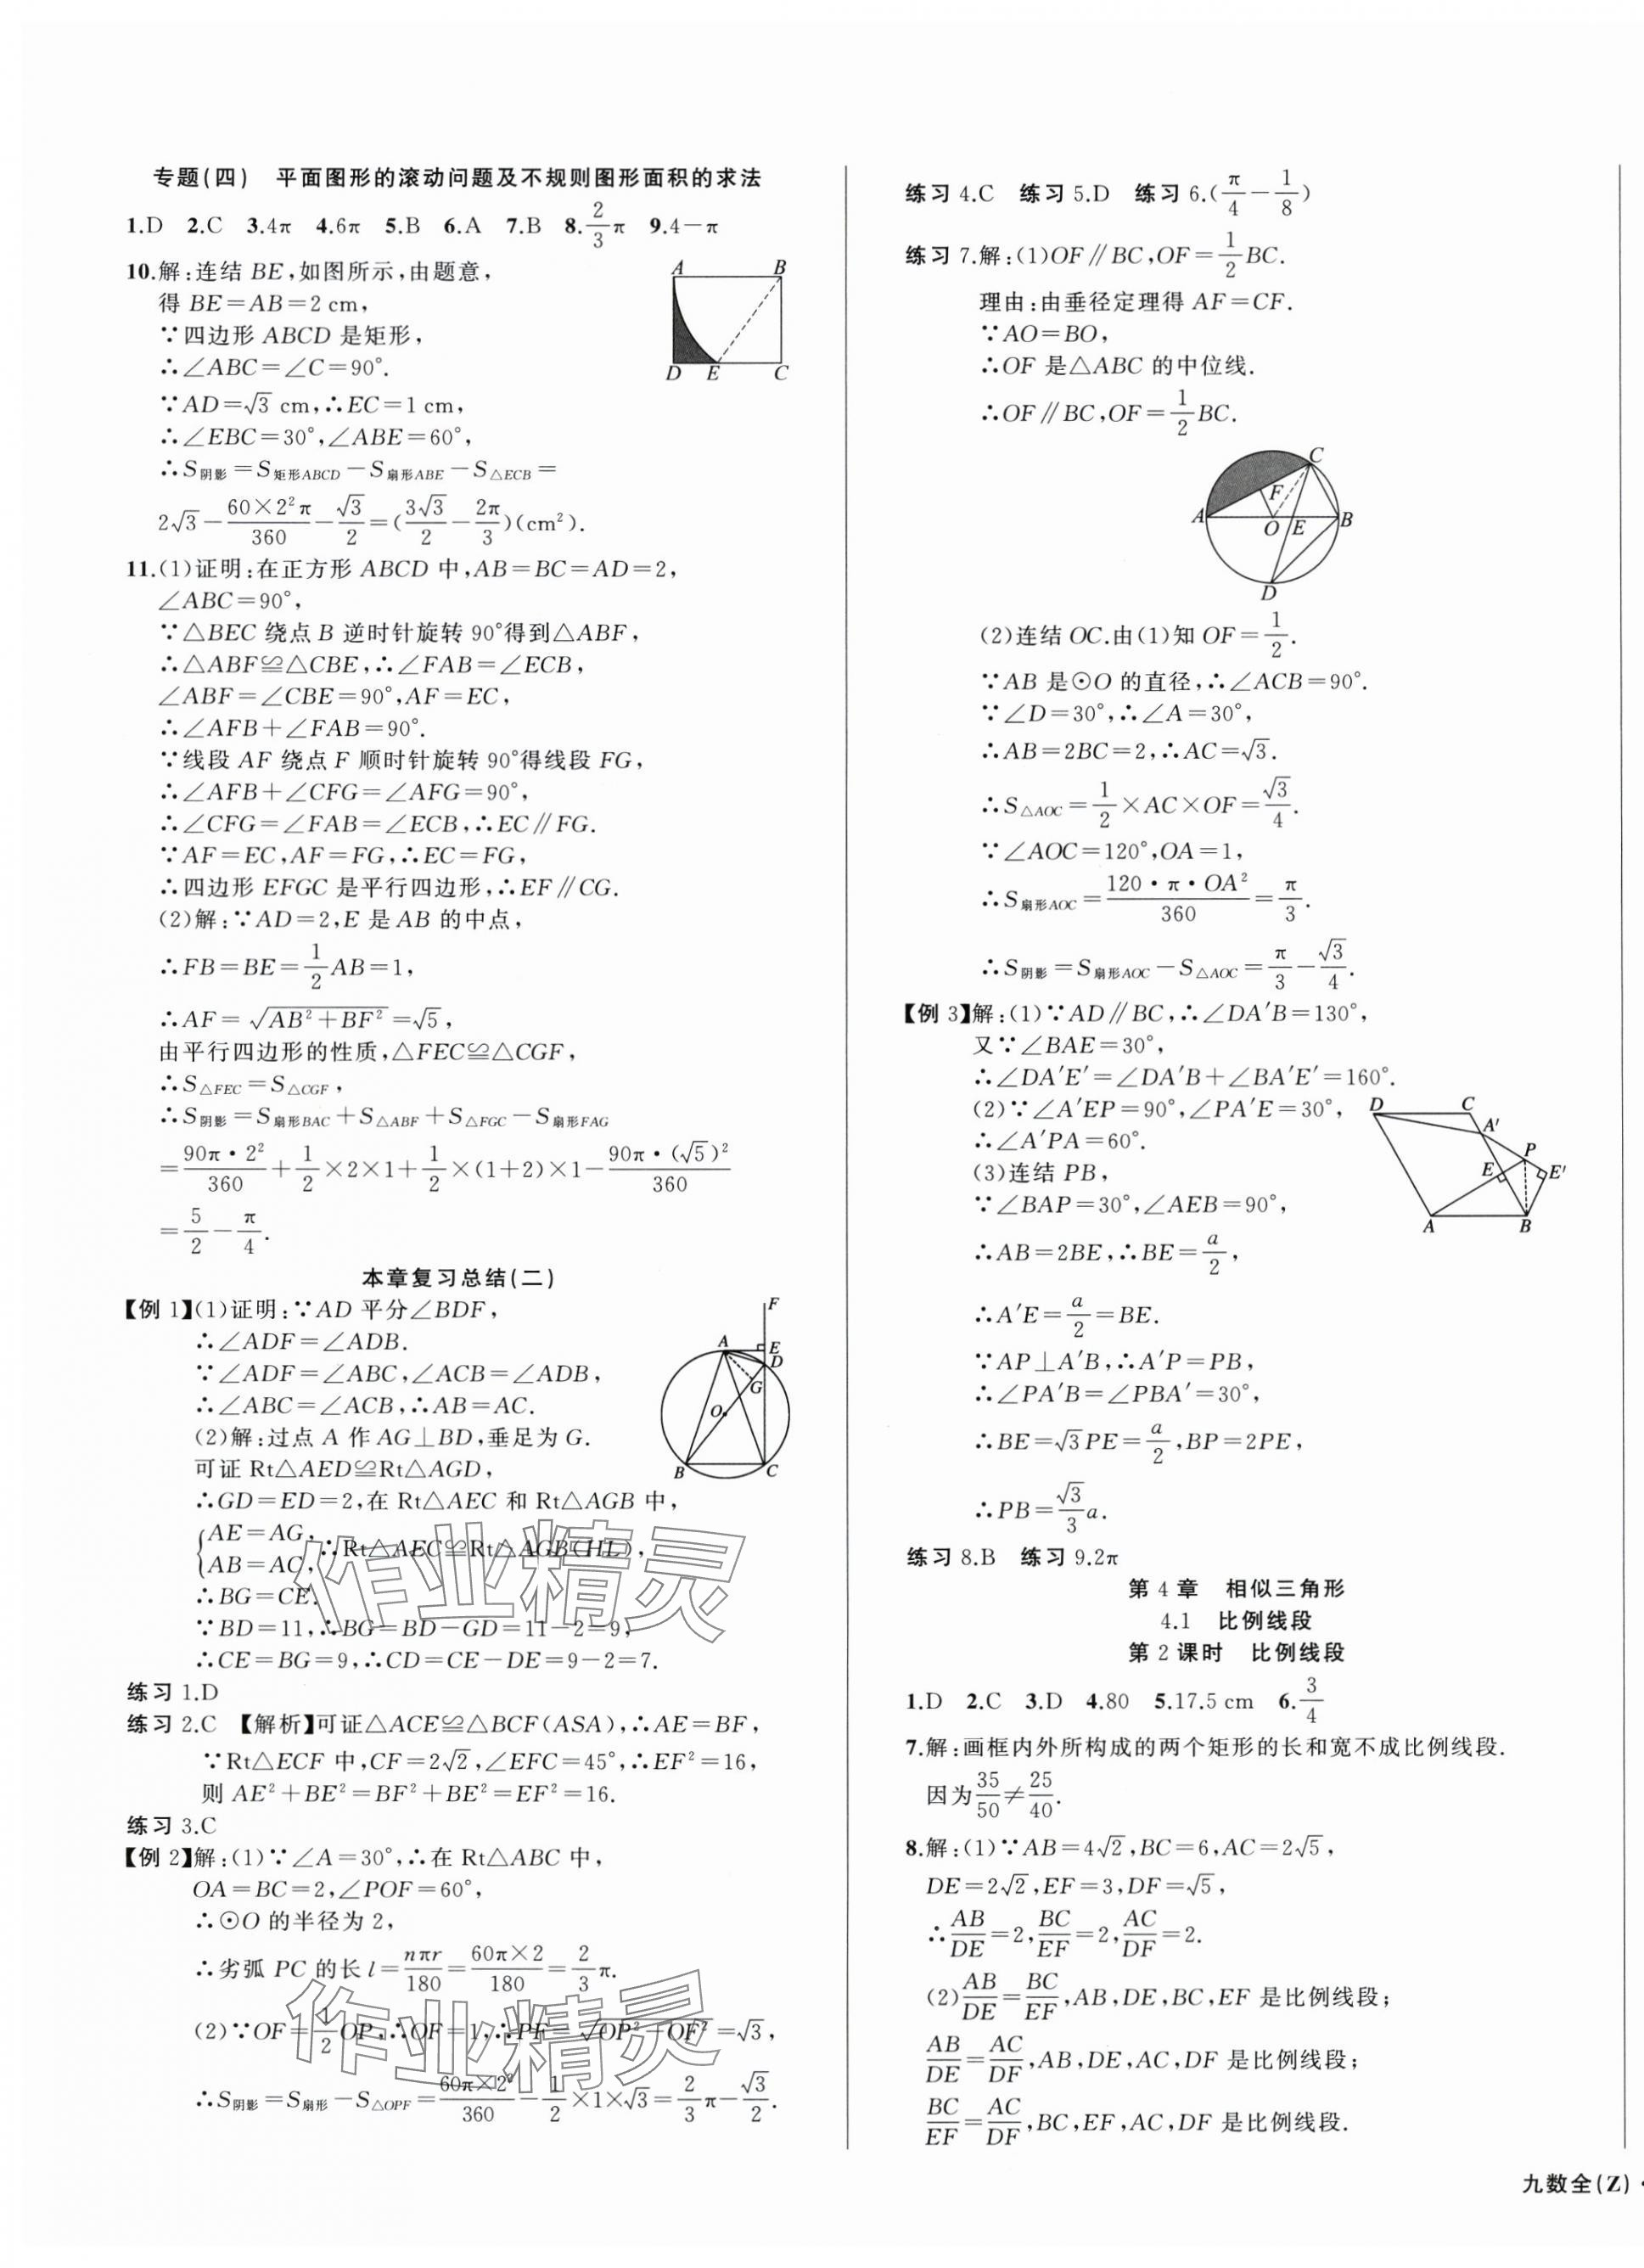 专题(四) 平面图形的滚动问题及不规则图形面积的求法
1.D 2.C 3.4π 4.6π 5.B 6.A 7.B 8.2/3π 9.4－π
10.解:连结BE,如图所示,由题意,
得BE=AB=2 cm,
∵四边形ABCD是矩形,
∴∠ABC=∠C=90°.
∵AD=√3 cm,∴EC=1 cm,
∴∠EBC=30°,∠ABE=60°,
∴S阴影=S矩形ABCD－S扇形ABE－S△ECB=
2√3－60×2²π/360－√3/2=(3√3/2－2π/3)(cm²).
A B
D E C
11.(1)证明:在正方形ABCD中,AB=BC=AD=2,
∠ABC=90°,
∵△BEC绕点B逆时针旋转90°得到△ABF,
∴△ABF≌△CBE,∴∠FAB=∠ECB,
∠ABF=∠CBE=90°,AF=EC,
∴∠AFB+∠FAB=90°.
∵线段AF绕点F顺时针旋转90°得线段FG,
∴∠AFB+∠CFG=∠AFG=90°,
∴∠CFG=∠FAB=∠ECB,∴EC∥FG.
∵AF=EC,AF=FG,∴EC=FG,
∴四边形EFGC是平行四边形,∴EF∥CG.
(2)解:∵AD=2,E是AB的中点,
∴FB=BE=1/2AB=1,
∴AF=√(AB²+BF²)=√5,
由平行四边形的性质,△FEC≌△CGF,
∴S△FEC=S△CGF,
∴S阴影=S扇形BAC+S△ABF+S△FGC－S扇形FAG
=90π·2²/360+1/2×2×1+1/2×(1+2)×1－90π·(√5)²/360
=5/2－π/4.
本章复习总结(二)
【例1】(1)证明:∵AD平分∠BDF,
∴∠ADF=∠ADB.
∵∠ADF=∠ABC,∠ACB=∠ADB,
∴∠ABC=∠ACB,∴AB=AC.
(2)解:过点A作AG⊥BD,垂足为G.
可证Rt△AED≌Rt△AGD,
∴GD=ED=2,在Rt△AEC和Rt△AGB中,
{AE=AG,
AB=AC, ∴Rt△AEC≌Rt△AGB(HL),
∴BG=CE.
∵BD=11,∴BG=BD－GD=11－2=9,
∴CE=BG=9,∴CD=CE－DE=9－2=7.
F
A E
D
G
O
B C
练习1.D
练习2.C 【解析】可证△ACE≌△BCF(ASA),∴AE=BF,
∵Rt△ECF中,CF=2√2,∠EFC=45°,∴EF²=16,
则AE²+BE²=BF²+BE²=EF²=16.
练习3.C
【例2】解:(1)∵∠A=30°,∴在Rt△ABC中,
OA=BC=2,∠POF=60°,
∴⊙O的半径为2,
∴劣弧PC的长l=nπr/180=60π×2/180=2/3π.
(2)∵OF=1/2OP,∴OF=1,∴PF=√(OP²－OF²)=√3,
∴S阴影=S扇形－S△OPF=60π×2²/360－1/2×1×√3=2/3π－√3/2.
作业精灵
作业精灵
练习4.C 练习5.D 练习6.(π/4－1/8)
练习7.解:(1)OF∥BC,OF=1/2BC.
理由:由垂径定理得AF=CF.
∵AO=BO,
∴OF是△ABC的中位线.
∴OF∥BC,OF=1/2BC.
C
F
A O E B
D
(2)连结OC.由(1)知OF=1/2.
∵AB是⊙O的直径,∴∠ACB=90°.
∵∠D=30°,∴∠A=30°,
∴AB=2BC=2,∴AC=√3.
∴S△AOC=1/2×AC×OF=√3/4.
∵∠AOC=120°,OA=1,
∴S扇形AOC=120·π·OA²/360=π/3.
∴S阴影=S扇形AOC－S△AOC=π/3－√3/4.
【例3】解:(1)∵AD∥BC,∴∠DA′B=130°,
又∵∠BAE=30°,
∴∠DA′E′=∠DA′B+∠BA′E′=160°.
(2)∵∠A′EP=90°,∠PA′E=30°,
∴∠A′PA=60°.
(3)连结PB,
∵∠BAP=30°,∠AEB=90°,
∴AB=2BE,∴BE=a/2,
∴A′E=a/2=BE.
∵AP⊥A′B,∴A′P=PB,
∴∠PA′B=∠PBA′=30°,
∴BE=√3PE=a/2,BP=2PE,
∴PB=√3/3a.
D C
A′
P
E E′
A B
练习8.B 练习9.2π
第4章 相似三角形
4.1 比例线段
第2课时 比例线段
1.D 2.C 3.D 4.80 5.17.5 cm 6.3/4
7.解:画框内外所构成的两个矩形的长和宽不成比例线段.
因为35/50≠25/40.
8.解:(1)∵AB=4√2,BC=6,AC=2√5,
DE=2√2,EF=3,DF=√5,
∴AB/DE=2,BC/EF=2,AC/DF=2.
(2)AB/DE=BC/EF,AB,DE,BC,EF是比例线段;
AB/DE=AC/DF,AB,DE,AC,DF是比例线段;
BC/EF=AC/DF,BC,EF,AC,DF是比例线段.
九数全(Z)·